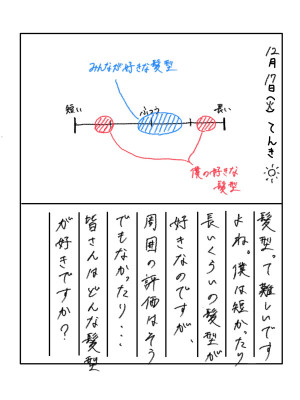 12月17日(火) てんき
みんなが好きな髪型
短い
ふつう
長い
僕の好きな
髪型
髪型って難しいです
よね。僕は短かったり
長いくらいの髪型が
好きなのですが、
周囲の評価はそう
でもなかったり...
皆さんはどんな髪型
が好きですか?